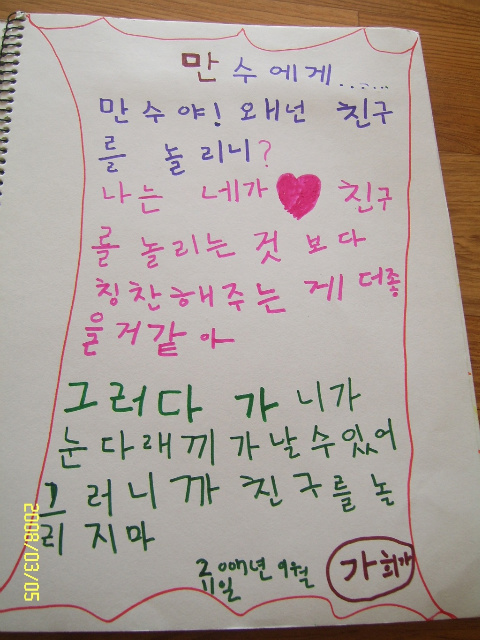 만수에게......
만수야! 왜넌 친구
를 놀리니?
나는 네가 친구
를 놀리는 것 보다
칭찬해주는 게 더좋
을거같아
그러다가 니가
눈다래끼가날수있어
그러니까 친구를 놀
리지마
2007년 9월
11일
가희가
2008/03/05